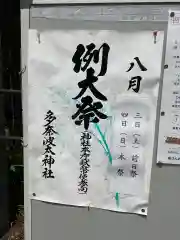 八月
三日(土)前日祭
四日(日)本祭
例大祭
神社本庁献幣使参向
多奈波太神社